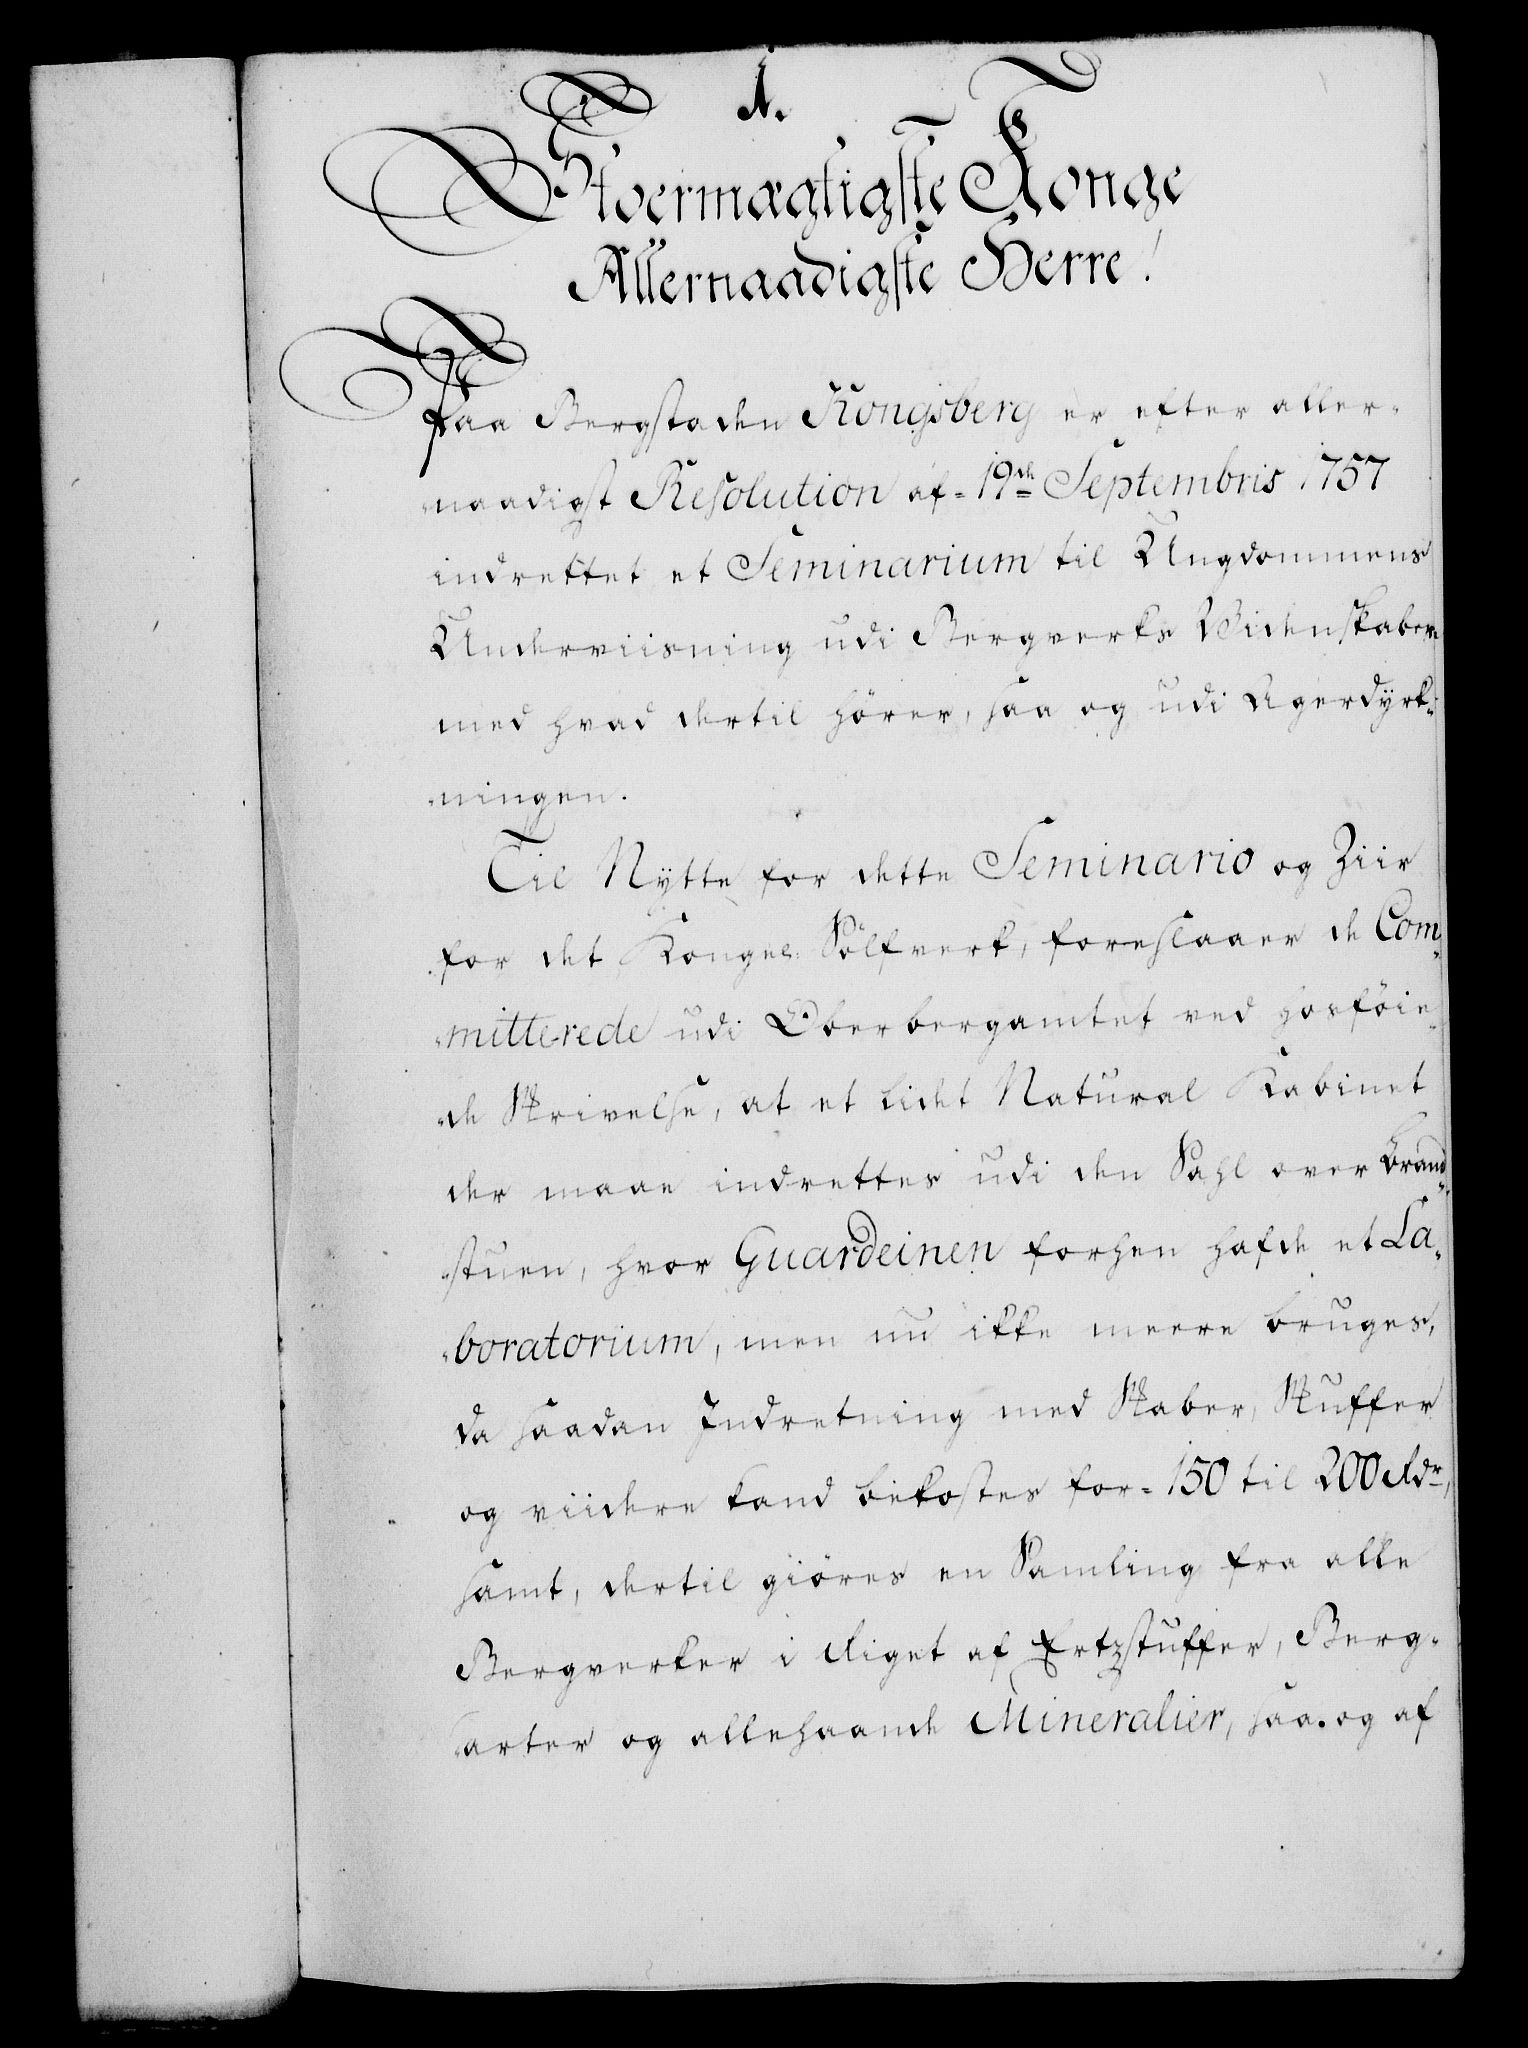 1.
Stoermægtigste Konge
Allernaadigste Herre!
Paa Bergstaden Kongsberg er efter aller-
naadigst Resolution af 19de Septembris 1757
indrettet et Seminarium til Ungdommens
Underviisning udi Bergverks Widenskaber
med hvad dertil hörer, saa og udi Agerdÿrk-
ningen.
Til Nÿtte for dette Seminario og Ziir
for det Kongel. Sölfverk, foreslaaer de Com-
mitterede udi Oberbergamtet ved hosföie-
de Skrivelse, at et lidet Natural Kabinet
der maae indrettes udi den Sahl over Brand-
stuen, hvor Guardeinen forhen hafde et La-
boratorium, men nu ikke meere bruges,
da saadan Indretning med Skaber, Skuffer
og viidere kand bekostes for 150 til 200 Rdr,
samt, dertil giöres en Samling fra alle
Bergverker i Riget af Ertzstuffer, Berg-
arter og allehaande Mineralier, saa og af